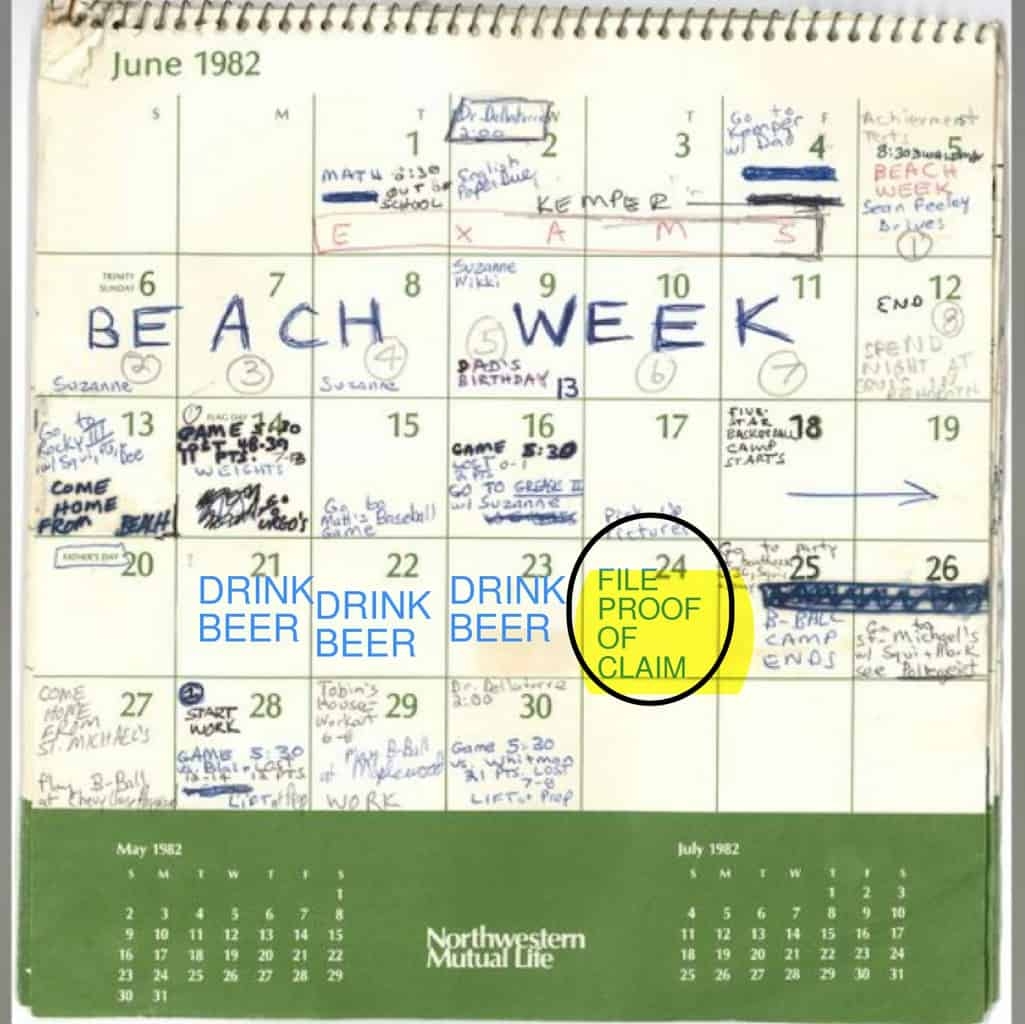 June 1982
S M T W T F S
1
MATH 8:30
OUT OF
SCHOOL
Dr. Dellatorre
2:00
2
English
Paper Due
3
KEMPER
Go to
Kemper
w/ Dad
4
Achievement
Tests
5
8:30
BEACH
WEEK
Sean Feeley
Drives
1
E X A M S
TRINITY
SUNDAY 6
2
Suzanne
7
3
8
4
Suzanne
Suzanne
Nikki
9
5
DAD'S
BIRTHDAY 13
10
6
11
7
12
END
8
SPEND
NIGHT AT
BEACH WEEK
Go to 13
Rocky III
w/ Squi,
COME
HOME
FROM BEACH
FLAG DAY 14
GAME 5:30
LOST 48-39
11 PTS.
WEIGHTS
GO
15
Go to
Matt's Baseball
Game
16
GAME 5:30
LOST 0-1
2 PTS
GO TO GREASE II
w/ Suzanne
17
Pick Up
Pictures
FIVE-
STAR
BASKETBALL 18
CAMP
STARTS
19
FATHER'S DAY
20
21
DRINK
BEER
22
DRINK
BEER
23
DRINK
BEER
24
FILE
PROOF
OF
CLAIM
Go to party
25
B-BALL
CAMP
ENDS
26
Go to
St. Michael's
w/ Squi + Mark
see Poltergeist
COME 27
HOME
FROM
ST. MICHAEL'S
Play B-Ball
at Chevy Chase
28
START
WORK
GAME 5:30
vs. Blair - LOST
Lift at Prep
Tobin's
House - 29
Workout
6-8
Play B-Ball
at
WORK
Dr. Dellatorre
2:00
30
Game 5:30
vs. Whitman
21 PTS. LOST
LIFT at Prep
May 1982
S M T W T F S
1
2 3 4 5 6 7 8
9 10 11 12 13 14 15
16 17 18 19 20 21 22
23 24 25 26 27 28 29
30 31
Northwestern
Mutual Life
July 1982
S M T W T F S
1 2 3
4 5 6 7 8 9 10
11 12 13 14 15 16 17
18 19 20 21 22 23 24
25 26 27 28 29 30 31